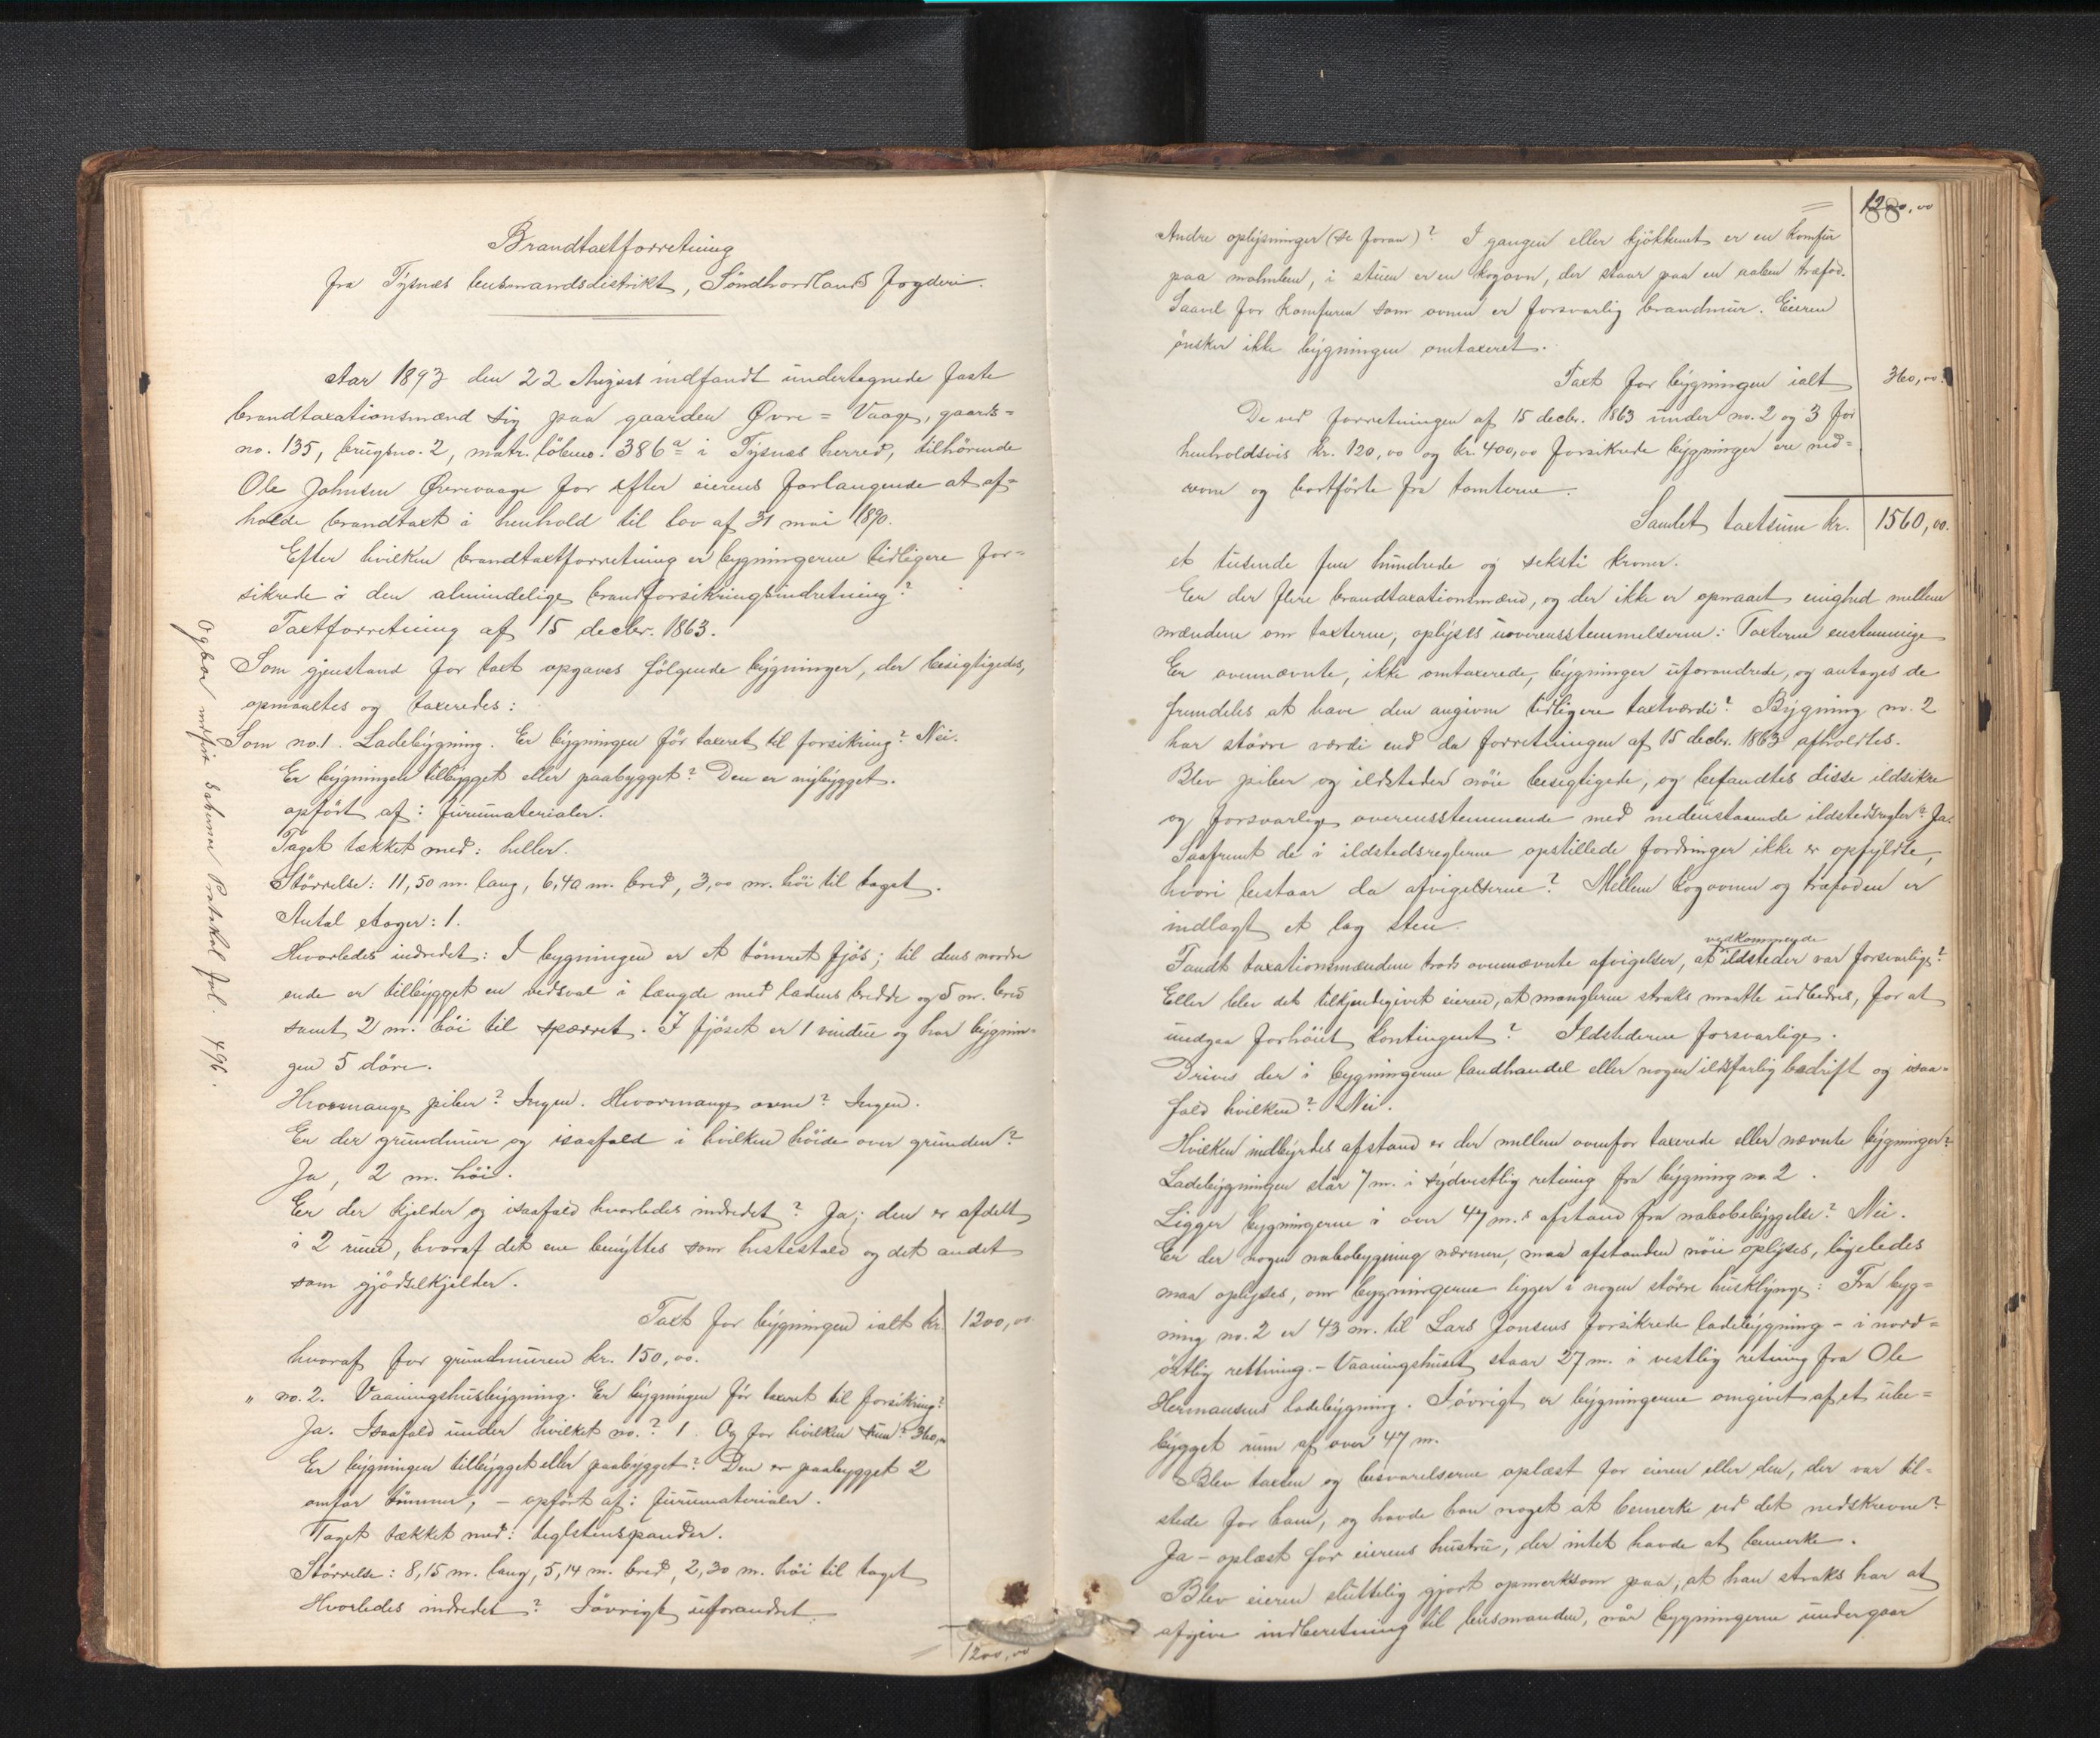 Brandtaxtforretning
fra Tysnæs lensmandsdistrikt, Söndhordlands fogderi.
Aar 1893 den 22 August indfandt undertegnede faste
brandtaxationsmænd sig paa gaarden Øvre=Vaage, gaards=
no. 135, brugsno. 2, matr. löbeno. 386a i Tysnæs herred, tilhörende
Ole Johnsen Øvrevaage for efter eierens forlangende at af=
holde brandtaxt i henhold til lov af 31 mai 1890.
Efter hvilken brandtaxtforretning er bygningerne tidligere for=
sikrede i den almindelige brandforsikringsindretning?
Taxtforretning af 15 decbr. 1863.
Som gjenstand for taxt opgaves fölgende bygninger, der besigtigedes,
opmaaltes og taxeredes:
Som no. 1. Ladebygning. Er bygningen för taxeret til forsikring? Nei.
Er bygningen tilbygget eller paabygget? Den er nybygget.
opfört af: furumaterialer.
Taget tækket med: heller.
Störrelse: 11,50 m. lang, 6,40 m. bred, 3,00 m. höi til taget.
Antal etager: 1.
Hvorledes indredet: I bygningen er et tömret fjös; til dens nordre
ende er tilbygget en vedsval i længde med ladens bredde og 5 m. bred
samt 2 m. höi til spærret. I fjöset er 1 vindue og har bygnin=
gen 5 döre.
Hvormange piber? Ingen. Hvormange ovne? Ingen.
Er der grundmur og isaafald i hvilken höide over grunden?
Ja, 2 m. höi.
Er der kjelder og isaafald hvorledes indredet? Ja; den er afdelt
i 2 rum, hvoraf det ene benyttes som hestestald og det andet
som gjödselkjelder.
Taxt for bygningen ialt kr. 1200,00
hvoraf for grundmuren kr. 150,00.
" no. 2. Vaaningshusbygning. Er bygningen för taxeret til forsikring?
Ja. Isaafald under hvilket no.? 1. Og for hvilken sum? 360,00
Er bygningen tilbygget eller paabygget? Den er paabygget 2
omfar tömmer; - opfört af: furumaterialer.
Taget tækket med: teglstenspander.
Störrelse: 8,15 m. lang, 5,14 m. bred, 2,30 m. höi til taget
Hvorledes indredet? Iövrigt uforandret.
1200,00
Protokol fol. 496.
1200,00
88
Andre oplysninger (se foran)? I gangen eller kjökkenet er en komfur
paa malmben, i stuen er en kogovn, der staar paa en aaben træfod.
Saavel for komfuren som ovnen er forsvarlig brandmur. Eieren
önsker ikke bygningen omtaxeret.
Taxt for bygningen ialt 360,00.
De ved forretningen af 15 decbr. 1863 under no. 2 og 3 for
henholdsvis kr. 120,00 og kr. 400,00 forsikrede bygninger ere ned=
revne og bortförte fra tomterne.
Samlet taxtsum kr. 1560,00.
et tusende fem hundrede og seksti kroner.
Er der flere brandtaxationsmænd, og der ikke er opnaaet enighed mellem
mændene om taxterne, oplyses uoverensstemmelserne: Taxterne enstemmige
Er ovennævnte, ikke omtaxerede, bygninger uforandrede, og antages de
fremdeles at have den angivne tidligere taxtværdi? Bygning no. 2
har större værdi end da forretningen af 15 decbr. 1863 afholdtes.
Blev piber og ildsteder nöie besigtigede, og befandtes disse ildsikre
og forsvarlige overensstemmende med nedenstaaende ildstedsregler? Ja.
Saafremt de i ildstedsreglerne opstillede fordringer ikke er opfyldte,
hvori bestaar da afvigelserne? Mellem kogovnen og træfoden er
indlagt et lag sten.
vedkommende
Fandt taxationsmændene trods ovennævnte afvigelser, at ildsteder var forsvarlige?
Eller blev det tilkjendegivet eieren, at manglerne straks maatte udbedres, for at
undgaa forhöiet kontingent? Ildstederne forsvarlige.
Drives der i bygningerne landhandel eller nogen ildsfarlig bedrift og isaa=
fald hvilken? Nei.
Hvilken indbyrdes afstand er der mellem ovenfor taxerede eller nævnte bygninger?
Ladebygningen står 7 m. i sydvestlig retning fra bygning no. 2.
Ligger bygningerne i over 47 m.s afstand fra nabobebyggelse? Nei.
Er der nogen nabobygning nærmere, maa afstanden nöie oplyses, ligeledes
maa oplyses, om bygningerne ligger i nogen större husklynge: Fra byg=
ning no. 2 er 43 m. til Lars Jonsens forsikrede ladebygning - i nord=
östlig rettning. - Vaaningshuset staar 27 m. i vestlig retning fra Ole
Hermansens ladebygning. Iövrigt er bygningerne omgivet af et ube=
bygget rum af over 47 m.
Blev taxten og besvarelserne oplæst for eieren eller den, der var til=
stede for ham, og havde han noget at bemerke ved det nedskrevne?
Ja - oplæst for eierens hustru, der intet havde at bemerke.
Blev eieren sluttelig gjort opmerksom paa, at han straks har at
afgive indberetning til lensmanden, når bygningerne undergaar